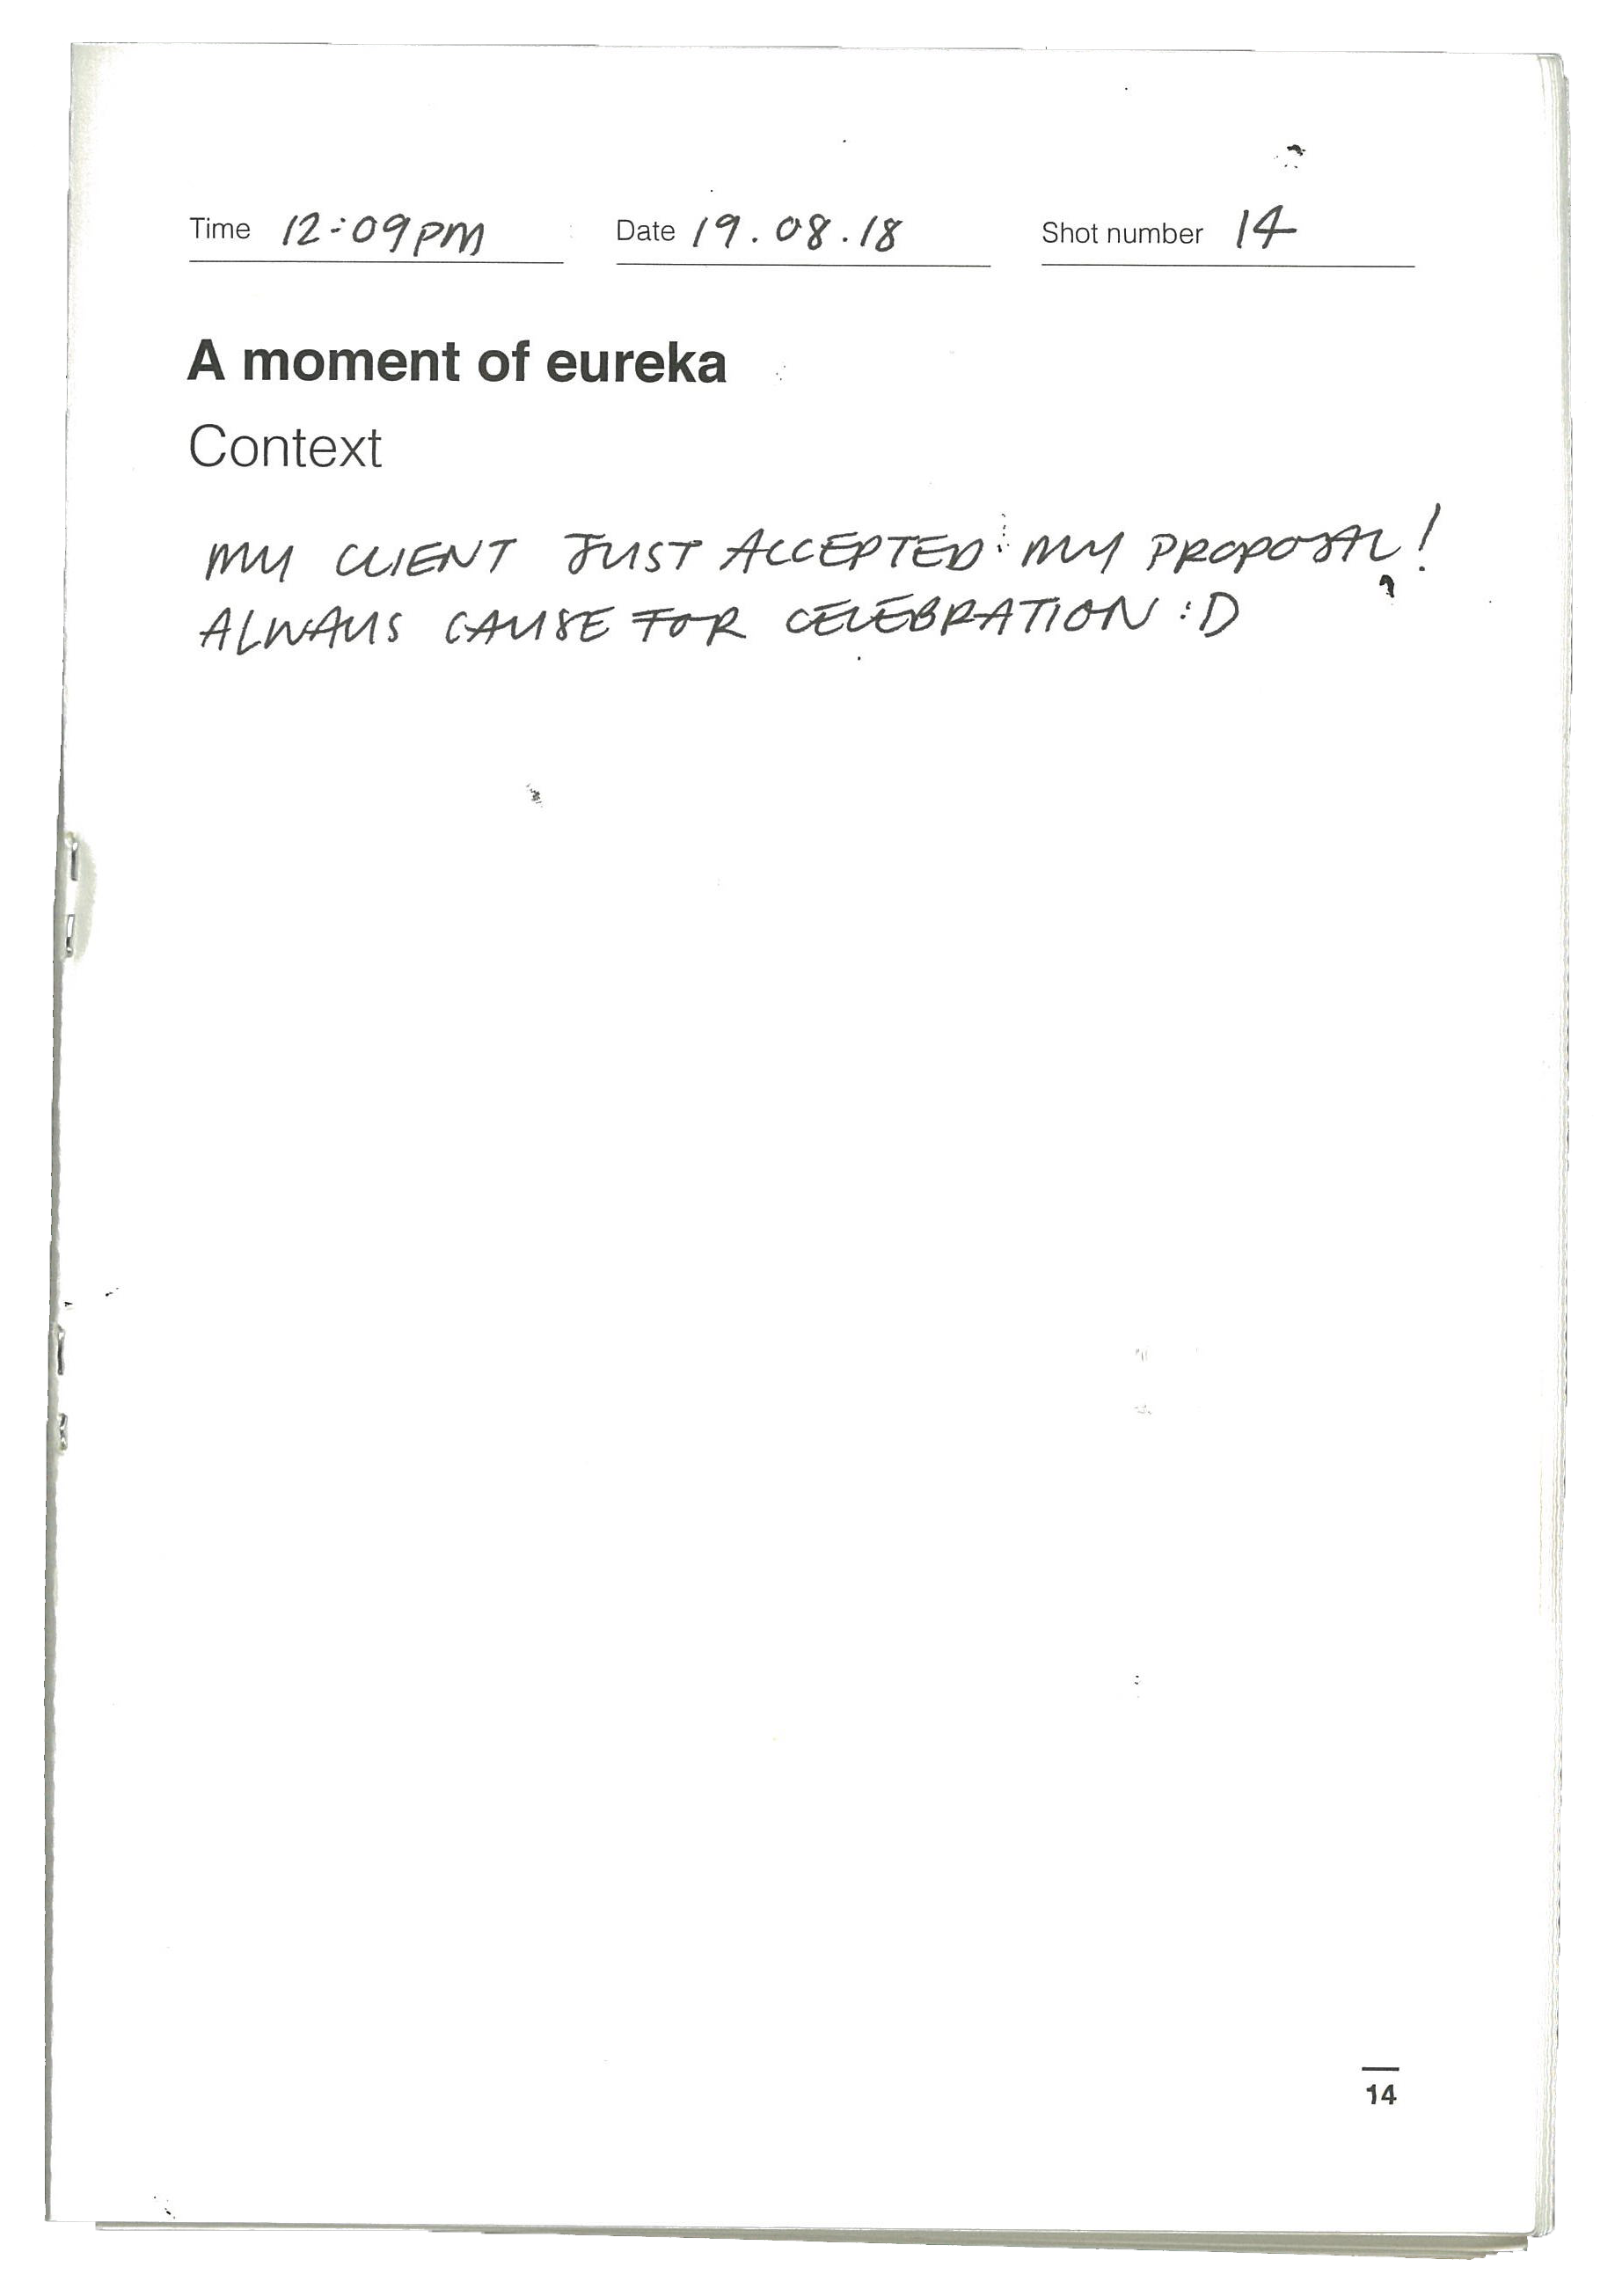 Time 12:09PM Date 19.08.18 Shot number 14
A moment of eureka
Context
MY CLIENT JUST ACCEPTED MY PROPOSAL!
ALWAYS CAUSE FOR CELEBRATION :D
14